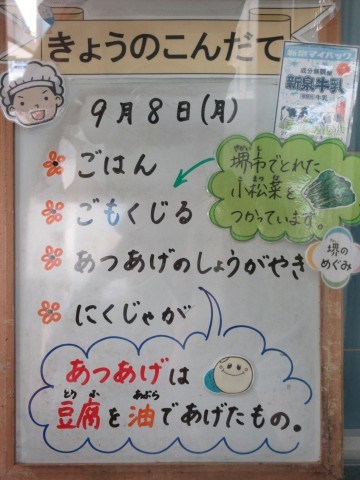 きょうのこんだて
9月8日(月)
ごはん
ごもくじる
あつあげのしょうがやき
にくじゃが
成分無調整
新泉牛乳
牛乳
堺市でとれた
小松菜を
つかっています。
堺の
めぐみ
あつあげは
豆腐を油であげたもの。